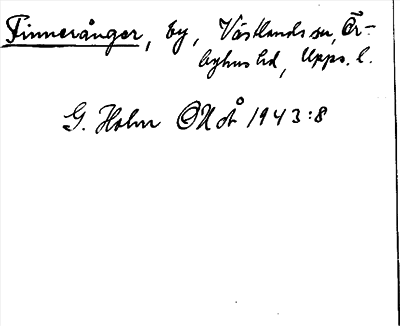 Finneränger, by, Västlands sn, Ör-
byhus hd, Upps. l.
G. Holm ONoÅ 1943:8